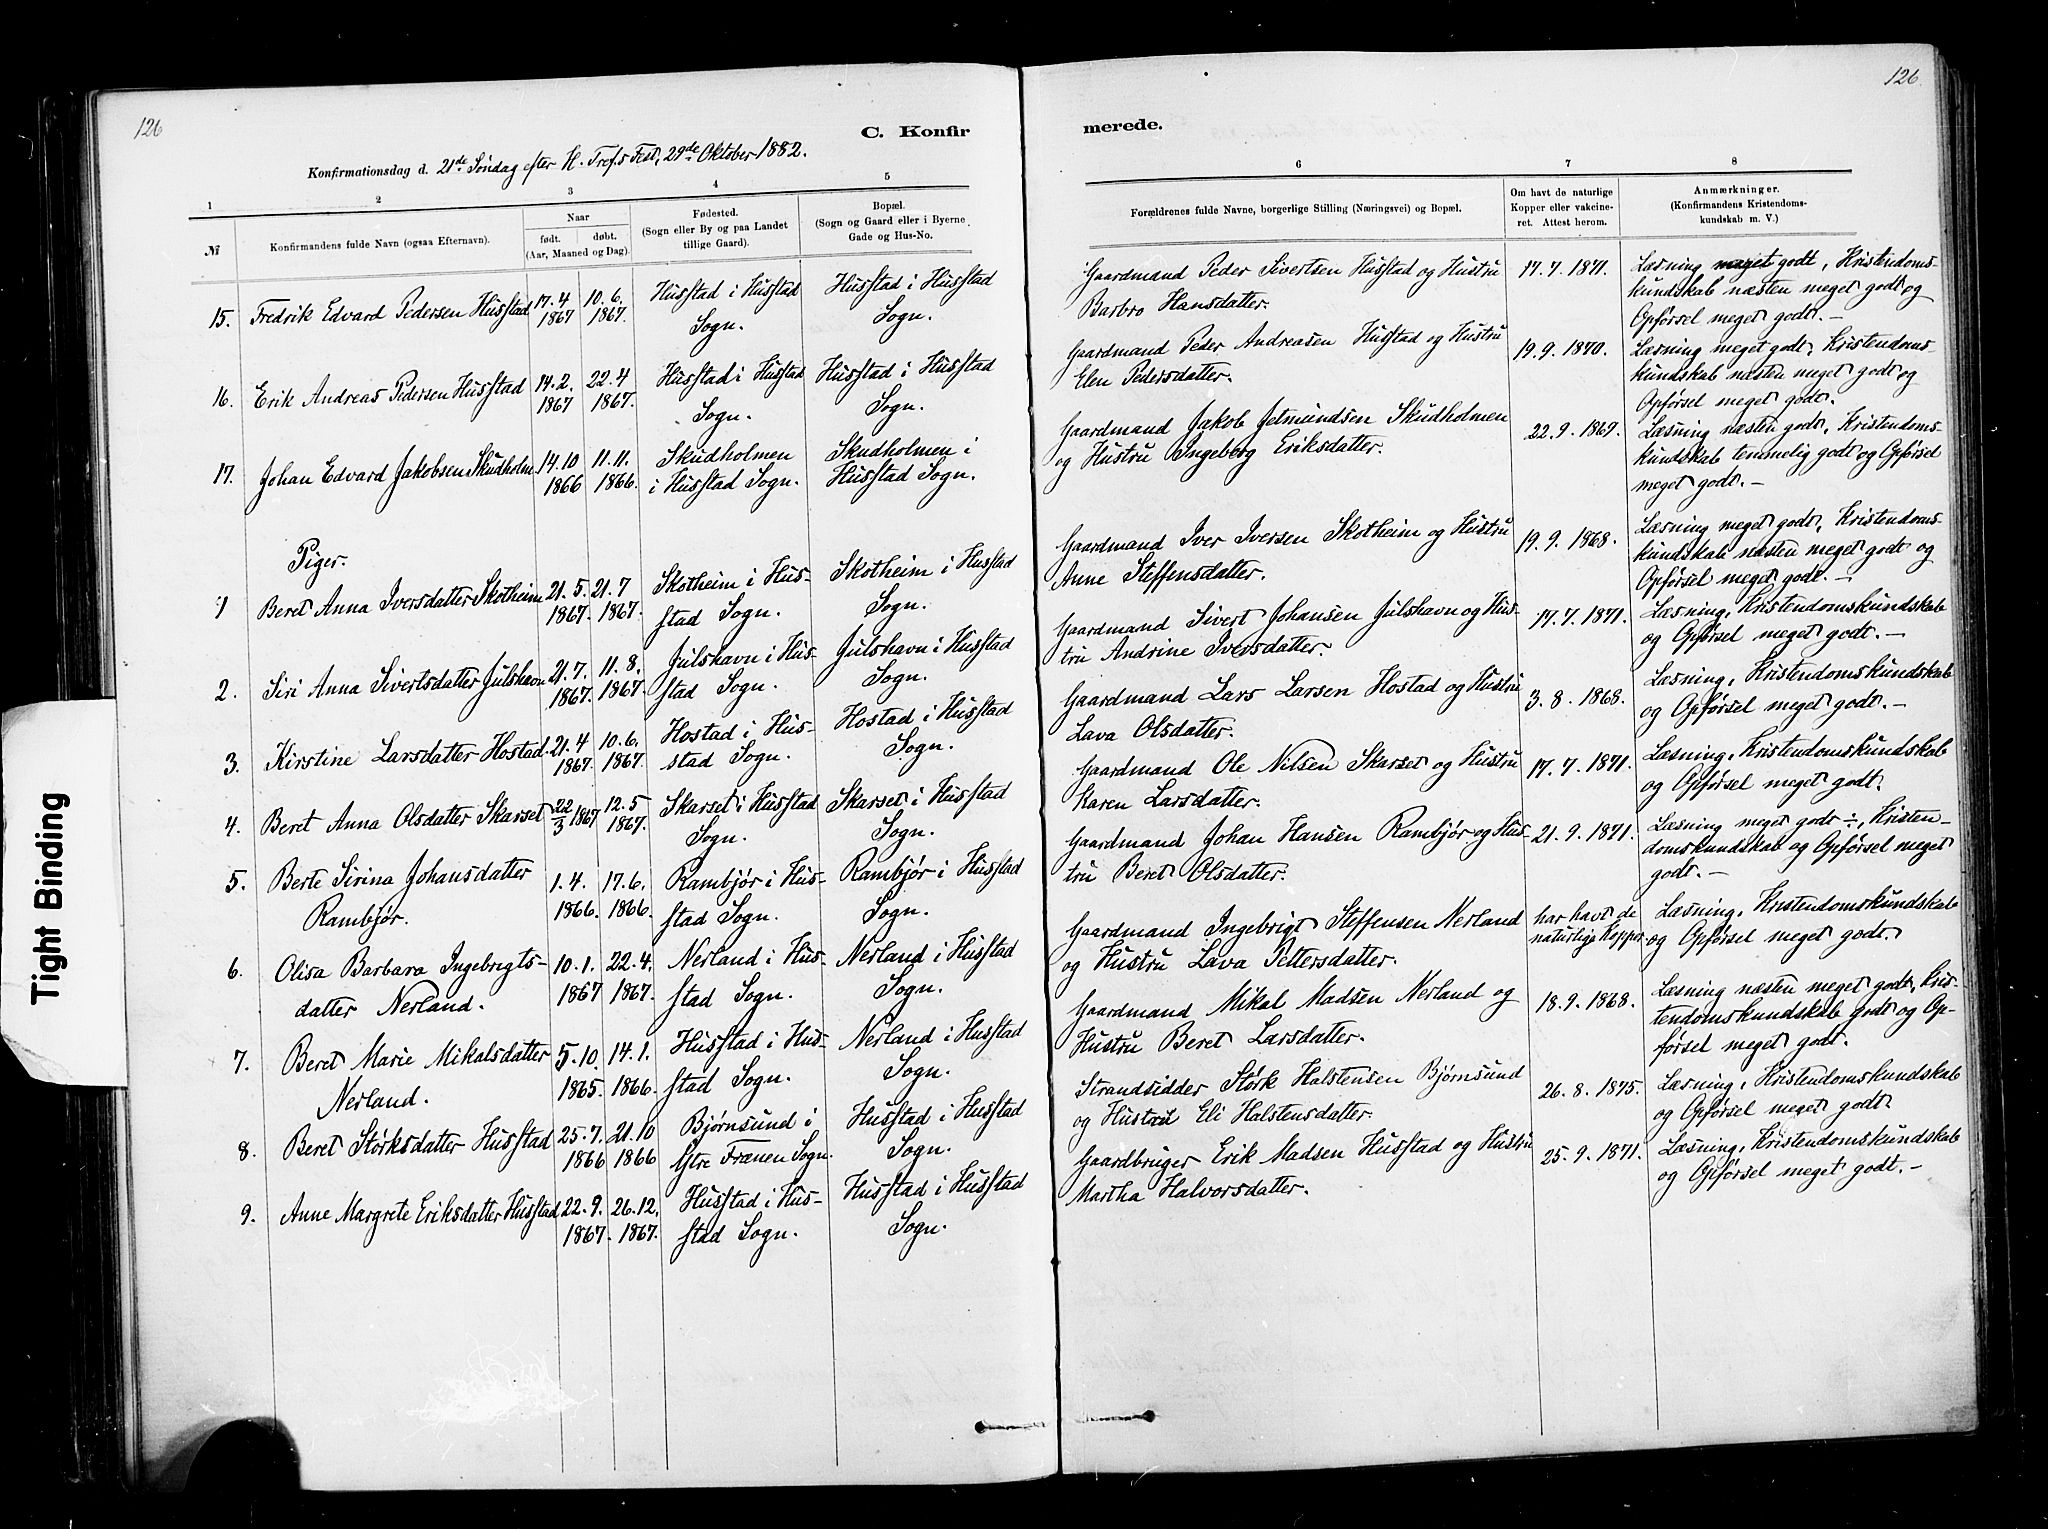 126
C. Konfir
Konfirmationsdag d. 21de Søndag efter H. Tref.s Fest, 29de Oktober 1882.
1 2 3 4 5
№
Konfirmandens fulde Navn (ogsaa Efternavn).
Naar
født. døbt.
(Aar, Maaned og Dag).
Fødested.
(Sogn eller By og paa Landet
tillige Gaard).
Bopæl.
(Sogn og Gaard eller i Byerne
Gade og Hus-No.
15. Fredrik Edvard Pedersen Husstad 17.4 10.6. Husstad i Husstad Husstad i Husstad
1867 1867. Sogn. Sogn.
16. Erik Andreas Pedersen Husstad 14.2. 22.4 Husstad i Husstad Husstad i Husstad
1867 1867. Sogn. Sogn.
17. Johan Edvard Jakobsen Skudholm 14.10 11.11. Skudholmen Skudholmen i
1866 1866. i Husstad Sogn. Husstad Sogn.
Piger.
1 Beret Anna Iversdatter Skotheim 21.5. 21.7 Skotheim i Hus- Skotheim i Husstad
1867. 1867. stad Sogn. Sogn.
2. Siri Anna Sivertsdatter Julshavn 21.7. 11.8. Julshavn i Hus- Julshavn i Husstad
1867. 1867 stad Sogn. Sogn.
3. Kirstine Larsdatter Hostad. 21.4 10.6. Hostad i Hus- Hostad i Husstad
1867. 1867. stad Sogn. Sogn.
4. Beret Anna Olsdatter Skarset 22/3 1867 12.5 Skarset i Husstad Skarset i Husstad
1867. Sogn. Sogn.
5. Berte Sirina Johansdatter 1.4. 17.6. Rambjør i Hus- Rambjør i Husstad
Rambjør. 1866. 1866. stad Sogn. Sogn.
6. Olisa Barbara Ingebrigts- 10.1. 22.4. Nerland i Hus- Nerland i Husstad
datter Nerland. 1867 1867. stad Sogn. Sogn.
7. Beret Marie Mikalsdatter 5.10. 14.1. Husstad i Hus- Nerland i Husstad
Nerland. 1865. 1866. stad Sogn. Sogn.
8. Beret Størksdatter Husstad 25.7. 21.10 Bjørnsund i Husstad i Husstad
1866 1866 Ytre Frænen Sogn. Sogn.
9. Anne Margrete Eriksdatter Husstad 22.9. 26.12. Husstad i Hus- Husstad i Husstad
1867. 1867. stad Sogn. Sogn.
126
merede.
6 7 8
Forældrenes fulde Navne, borgerlige Stilling (Næringsvei) og Bopæl.
Om havt de naturlige
Kopper eller vakcine-
ret. Attest herom.
Anmærkninger.
(Konfirmandens Kristendoms-
kundskab m. V.)
Gaardmand Peder Sivertsen Husstad og Hustru 17.7.1871. Læsning meget godt, Kristendoms-
Barbro Hansdatter. kundskab næsten meget godt og
Opførsel meget godt. —
Gaardmand Peder Andreasen Husstad og Hustru 19.9.1870. Læsning meget godt, Kristendoms-
Elen Pedersdatter. kundskab næsten meget godt og
Opførsel meget godt.
Gaardmand Jakob Jetmundsen Skudholmen 22.9.1869. Læsning næsten godt, Kristendoms-
og Hustru Ingeborg Eriksdatter. kundskab temmelig godt og Opførsel
meget godt. —
Gaardmand Iver Iversen Skotheim og Hustru 19.9.1868. Læsning meget godt, Kristendoms-
Anne Steffensdatter. kundskab næsten meget godt og
Opførsel meget godt. —
Gaardmand Sivert Johansen Julshavn og Hus- 17.7.1871. Læsning, Kristendomskundskab
tru Andrine Iversdatter. og Opførsel meget godt. —
Gaardmand Lars Larsen Hostad og Hustru 3.8.1868. Læsning, Kristendomskundskab
Lava Olsdatter. og Opførsel meget godt. —
Gaardmand Ole Nilsen Skarset og Hustru 17.7.1871. Læsning, Kristendomskundskab
Karen Larsdatter. og Opførsel meget godt.
Gaardmand Johan Hansen Rambjør og Hus- 21.9.1871. Læsning meget godt ÷, Kristen-
tru Beret Olsdatter. domskundskab og Opførsel meget
godt. —
Gaardmand Ingebrigt Steffensen Nerland har havt de Læsning, Kristendomskundskab
og Hustru Lava Pettersdatter. naturlige Kopper. og Opførsel meget godt.
Gaardmand Mikal Madsen Nerland og 18.9.1868. Læsning næsten meget godt, Kris-
Hustru Beret Larsdatter. tendomskundskab godt og Op-
førsel meget godt.
Strandsidder Størk Halstensen Bjørnsund 26.8.1875. Læsning, Kristendomskundskab
og Hustru Eli Halstensdatter. og Opførsel meget godt.
Gaardbruger Erik Madsen Husstad og Hustru 25.9.1871. Læsning, Kristendomskundskab
Martha Halvorsdatter. og Opførsel meget godt. —
Tight Binding